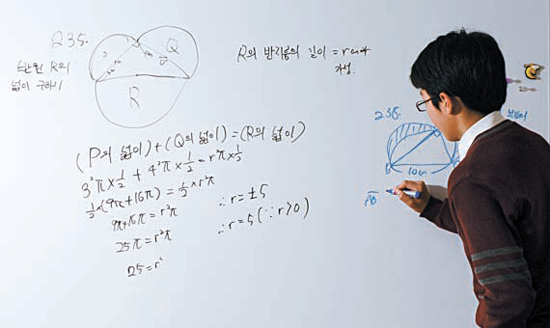 235.
반원 R의
넓이 구하기
Q
R
R의 반지름의 길이 = r cm
가정.
(P의 넓이) + (Q의 넓이) = (R의 넓이)
3²π × 1/2 + 4²π × 1/2 = r²π × 1/2
1/2 × (9π + 16π) = 1/2 × r²π
9π + 16π = r²π
25π = r²π
25 = r²
∴ r = ±5
∴ r = 5 (∵ r > 0)
238.
B
10cm
AB